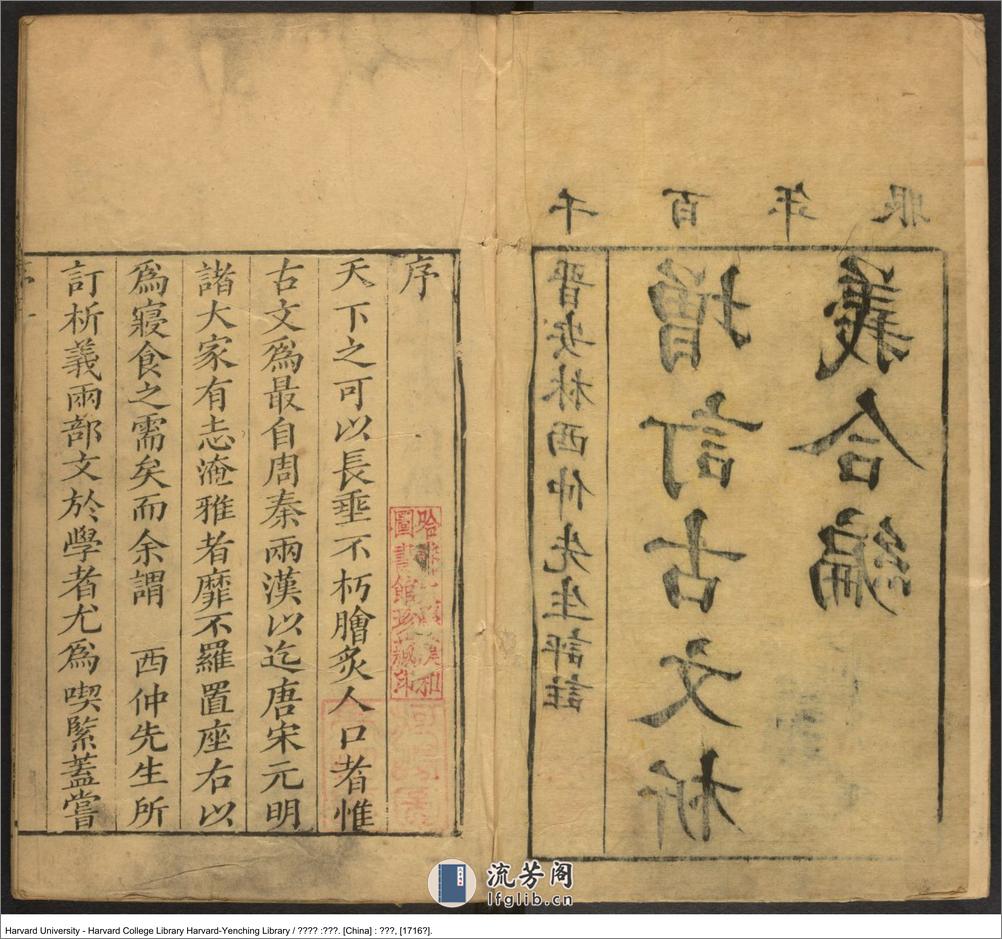 千百年眼
晉安林西仲先生評註
增訂古文析
義合編
序
天下之可以長垂不朽膾炙人口者惟
古文爲最自周秦兩漢以迄唐宋元明
諸大家有志淹雅者靡不羅置座右以
爲寢食之需矣而余謂 西仲先生所
訂析義兩部文於學者尤爲喫緊蓋嘗
哈佛大學漢和
圖書館珍藏印
流芳阁
lfglib.cn
Harvard University - Harvard College Library Harvard-Yenching Library / ???? :???. [China] : ???, [1716?].